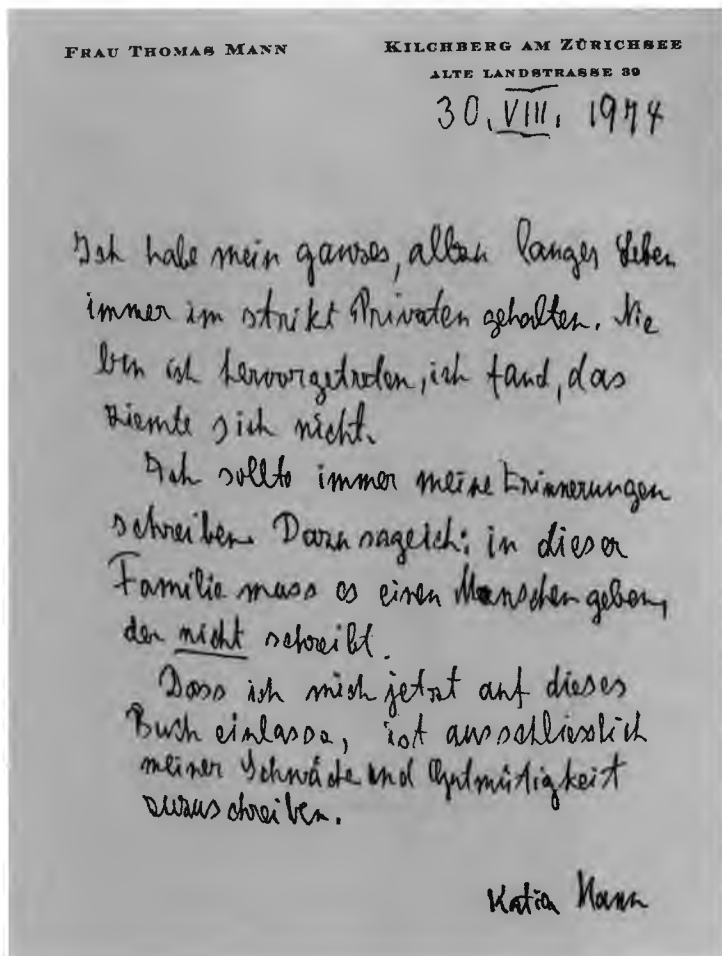 FRAU THOMAS MANN
KILCHBERG AM ZÜRICHSEE
ALTE LANDSTRASSE 39
30. VIII. 1974
Ich habe mein ganzes, allzu langes Leben
immer im strikt Privaten gehalten. Nie
bin ich hervorgetreten, ich fand, das
ziemte sich nicht.
Ich sollte immer meine Erinnerungen
schreiben. Dazu sage ich: in dieser
Familie muss es einen Menschen geben,
der nicht schreibt.
Dass ich mich jetzt auf dieses
Buch einlasse, ist ausschliesslich
meiner Schwäche und Gutmütigkeit
zuzuschreiben.
Katia Mann